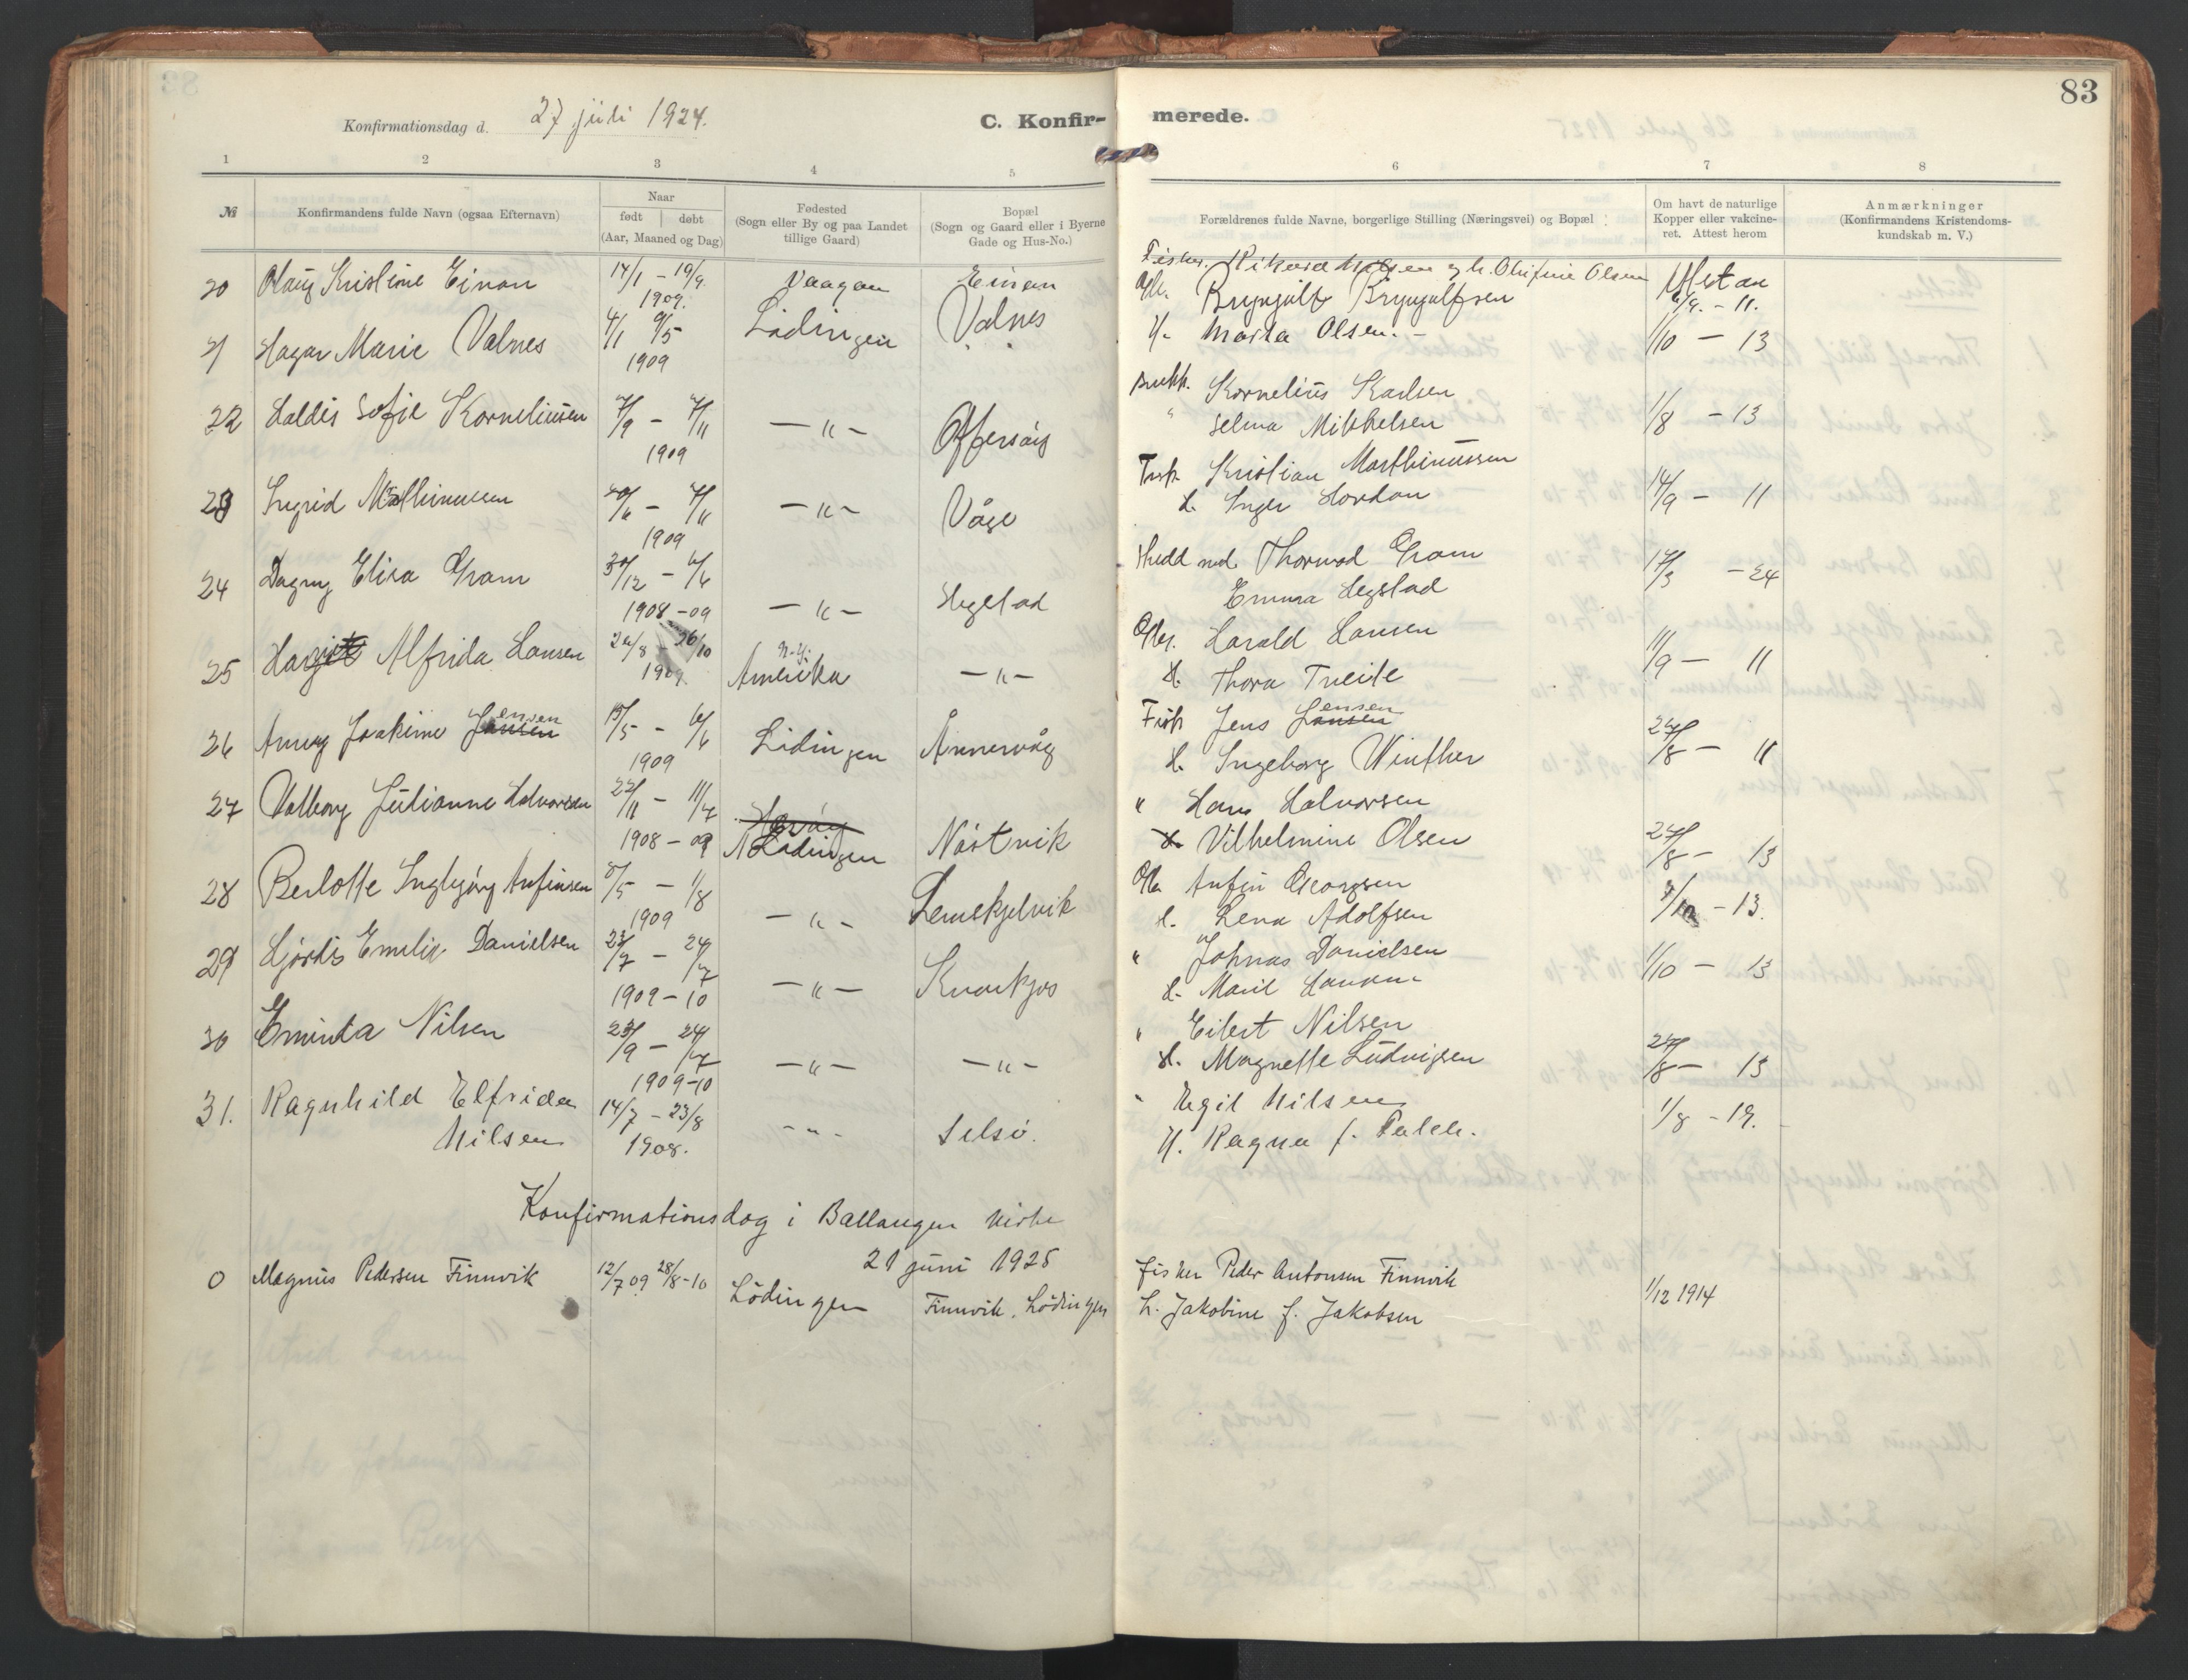 83
Konfirmationsdag d. 27 juli 1924.
C. Konfir- merede.
1 2 3 4 5 6 7 8
№
Konfirmandens fulde Navn (ogsaa Efternavn)
Naar
født | døbt
(Aar, Maaned og Dag)
Fødested
(Sogn eller By og paa Landet
tillige Gaard)
Bopæl
(Sogn og Gaard eller i Byerne
Gade og Hus-No.)
Forældrenes fulde Navne, borgerlige Stilling (Næringsvei) og Bopæl
Om havt de naturlige
Kopper eller vakcine-
ret. Attest herom
Anmærkninger
(Konfirmandens Kristendoms-
kundskab m. V.)
20 Olaug Kristine Einan 14/1 – 19/9 1909. Vaagan Einan
Fisker. Rikard Nilsen og h. Olufine Olsen Attest
Hagar Marie Valnes 4/1 9/5 1909 Lødingen Valnes
Gbr. Brynjulf Brynjulfsen
H. Marta Olsen. – 1/10 – 13
22 Haldis Sofie Korneliussen 7/9 – 7/11 1909 – " – Offersøy
Kornelius Karlsen
" Selma Mikkelsen 1/8 – 13
23 Ingrid Mathinussen – 7/11 1909 – " – Våge
Kristian Marthinussen
H. Inger Hordan 14/9 – 11
24 Dagny Elisa Gram 30/12 – 1908–09 – " – Hegstad
Thormod Gram
Emma Hegstad 17/3 – 24
25 Alfrida Hansen 26/8 – 26/10 1909. N.Y. Amerika – " –
Gbr. Harald Hansen
H. Thora Tveite 11/9 – 11
26 Anny Joakime Jensen 15/5 – 6/6 1909 Lødingen Ånnesvåg
Fisk Jens Jensen
H. Ingeborg Winther 24/8 – 11
27 Valborg Julianne Halvorsen 22/11 – 11/7 1908 – 09 Lødingen Nástvik
" Hans Halvorsen
H. Vilhelmine Olsen 24/8 – 13
28 Berlotte Ingbjørg Anfinsen 8/5 – 1/8 1909 – " –
Gbr Anfin Georgsen
H. Lena Adolfsen – 13.
29 Hjørdis Emelie Danielsen 23/7 – 24/7 1909 – 10 – " – Kvarkjos
" Johnas Danielsen
H. Marie 1/10 – 13
30 Eminda Nilsen 23/9 – 24/7 1909–10 – " – – " –
" Eilert Nilsen
H. Magnette Ludvigsen 24/8 – 13
31. Ragnhild Elfrida
Nilsen 14/7 – 23/8 1908. – " – Selsø.
" Egil Nilsen
H. Ragna f. 1/8 – 19.
Konfirmationsdag i Ballangen kirke
21 juni 1925
0 Magnus Pedersen Finnvik 12/7 09 28/8–10 Lødingen Finnvik, Lødingen
fisker Peder Antonsen Finnvik
h. Jakobine f. Jakobsen 1/12 1914